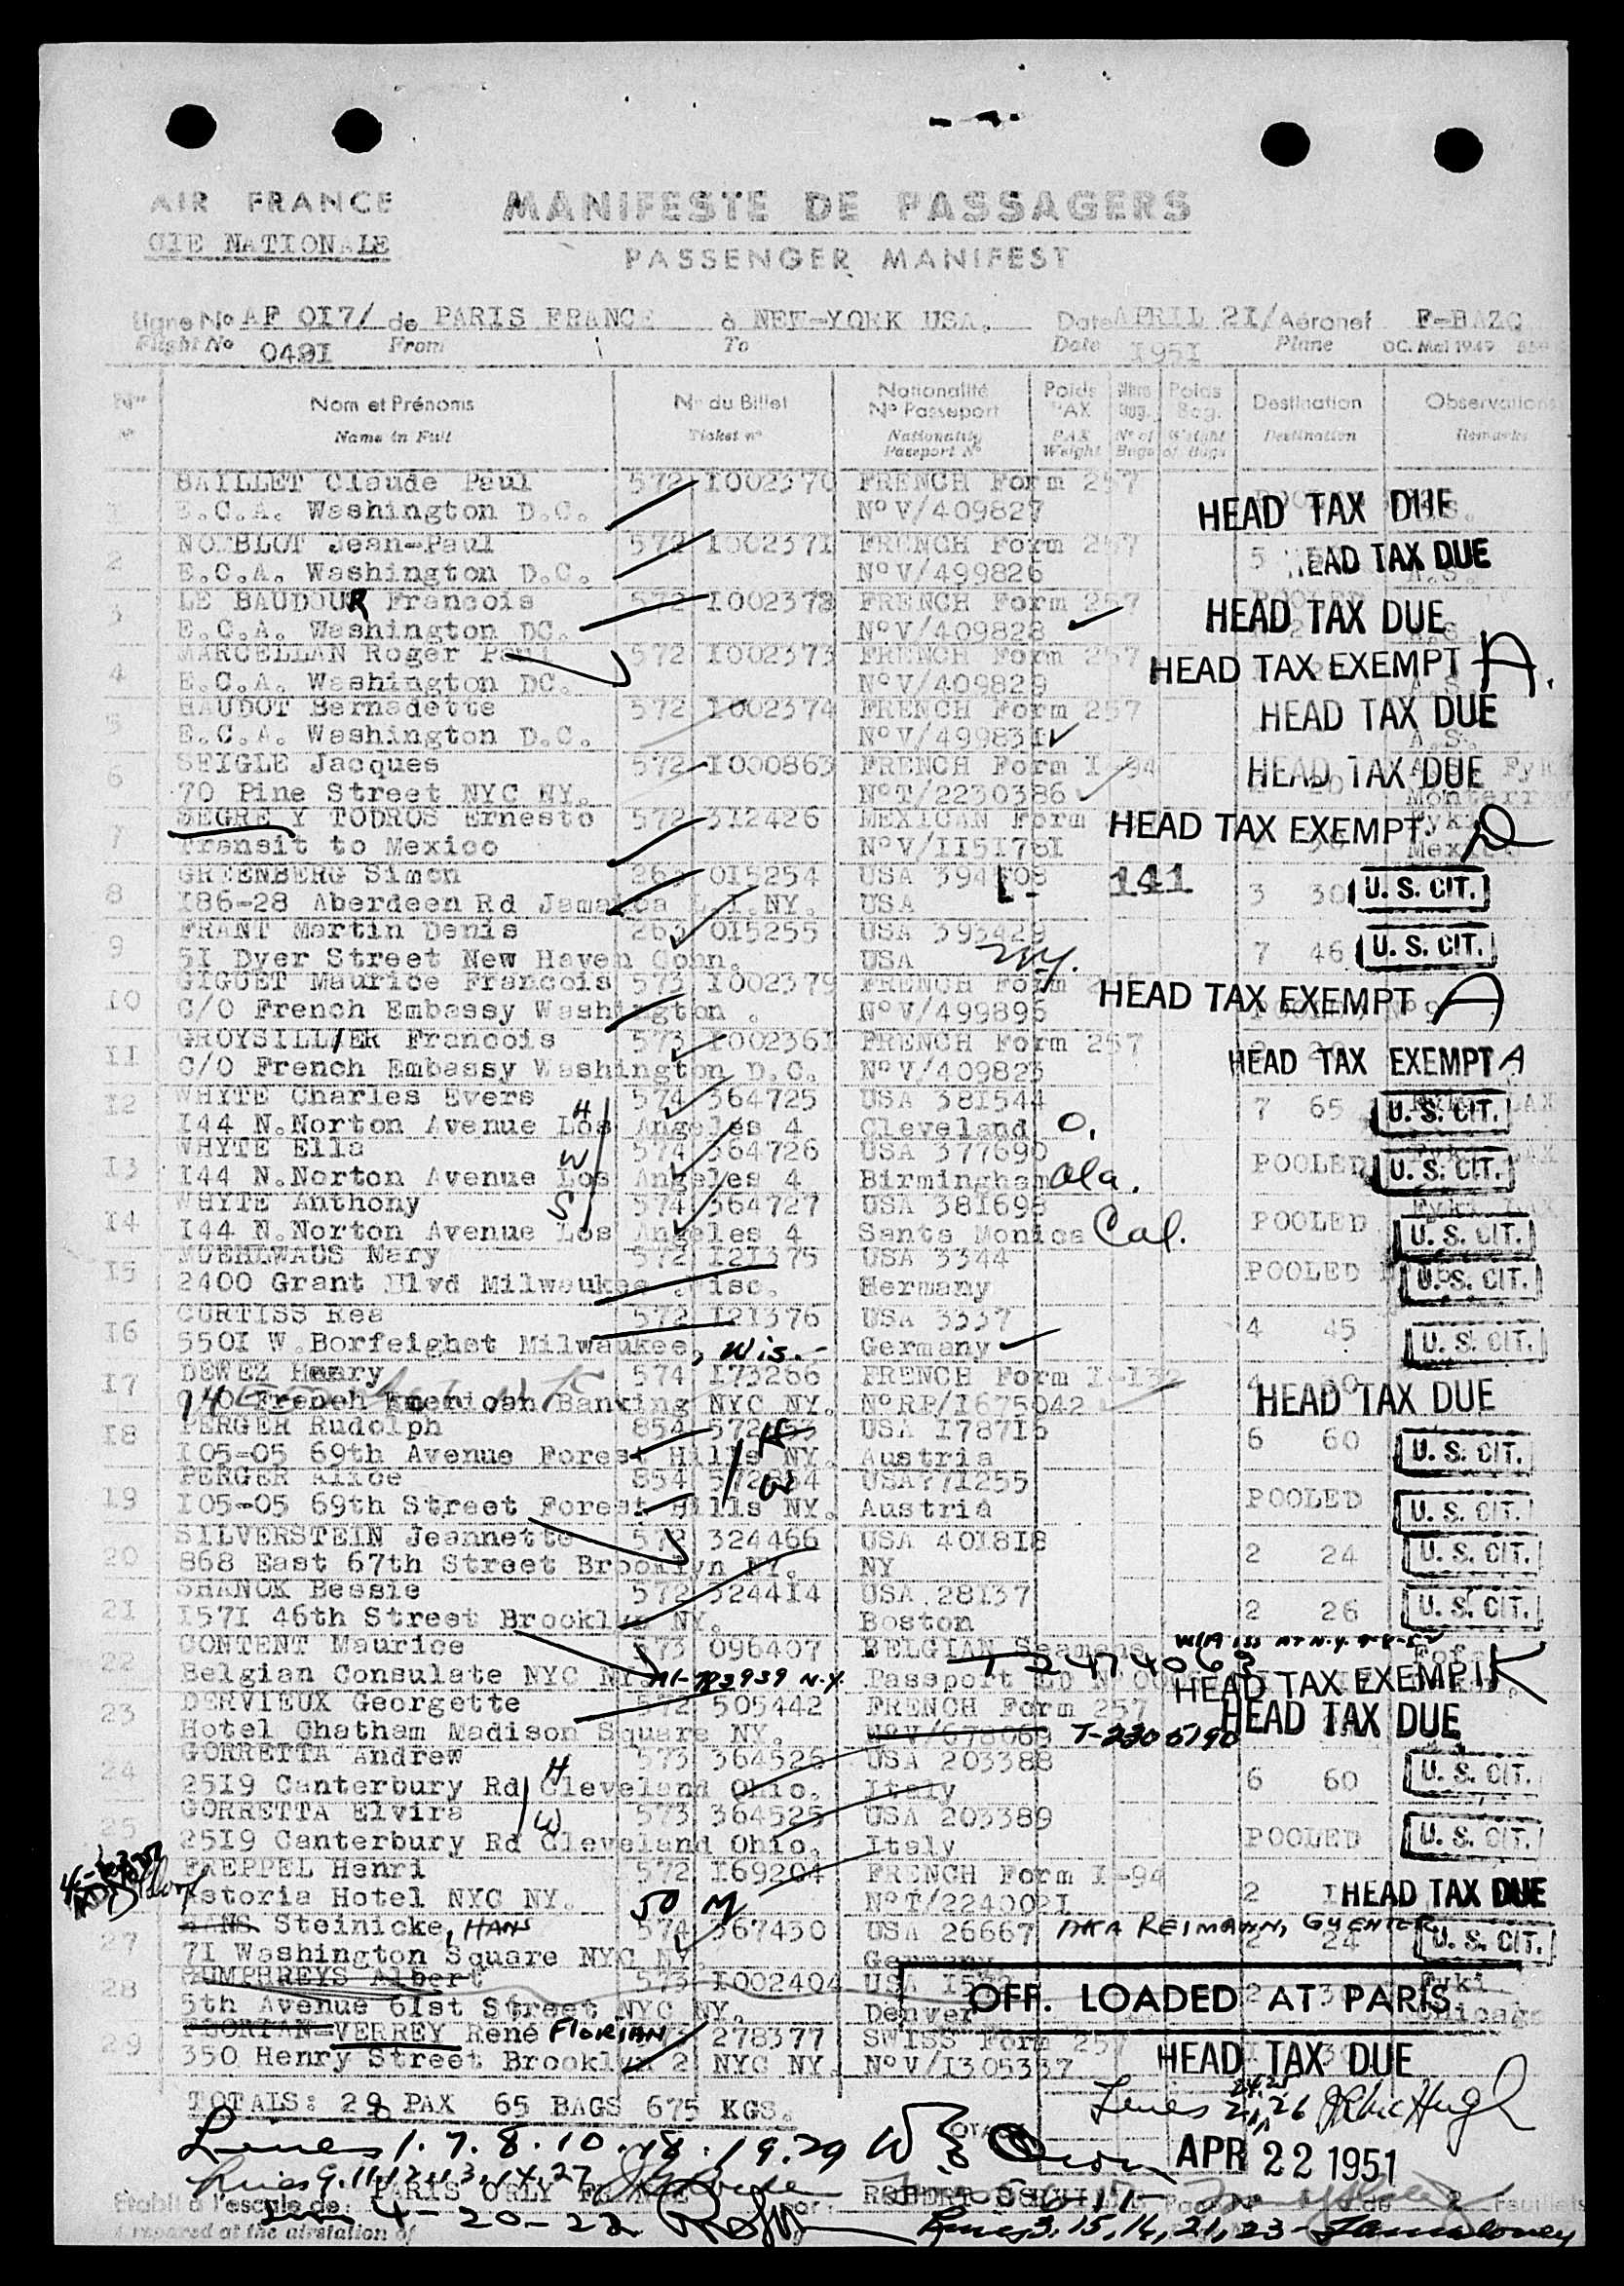 AIR FRANCE MANIFESTE DE PASSAGERS
CIE NATIONALE PASSENGER MANIFEST
Ligne No AF 017/ de PARIS FRANCE à NEW-YORK USA. Date APRIL 21/ Aéronef F-BAZQ
Flight No 0491 From To Date 1951 Plane OC. Mai 1949
Nom et Prénoms No du Billet Nationalité No Passeport Poids PAX Poids Bag. Destination Observations
Name in Full Ticket no Nationality Passport No PAX Weight No of Bags Weight of Bags Destination Remarks
BAILLET Claude Paul 572 1002370 FRENCH Form 257
1 E.C.A. Washington D.C. No V/409827 HEAD TAX DUE
NOMBLOT Jean-Paul 572 1002371 FRENCH Form 257
2 E.C.A. Washington D.C. No V/499826 5 HEAD TAX DUE
LE BAUDOUR Francois 572 1002372 FRENCH Form 257
3 E.C.A. Washington DC. No V/409828 HEAD TAX DUE
MARCELLAN Roger Paul 572 1002373 FRENCH Form 257
4 E.C.A. Washington DC. No V/409829 HEAD TAX EXEMPT A.
BAUDOT Bernadette 572 1002374 FRENCH Form 257
5 E.C.A. Washington D.C. No V/499831 HEAD TAX DUE
SEIGLE Jacques 572 1000863 FRENCH Form I-94
6 70 Pine Street NYC NY. No T/2230386 HEAD TAX DUE
SEGRE Y TODROS Ernesto 572 312426 MEXICAN Form
7 Transit to Mexico No V/1151781 HEAD TAX EXEMPT
GREENBERG Simon 263 015254 USA 394508 141
8 186-28 Aberdeen Rd Jamaica L.I.NY. USA 3 30 U. S. CIT.
FRANT Martin Denis 263 015255 USA 393429
9 51 Dyer Street New Haven Conn. USA NY. 7 46 U. S. CIT.
GIGUET Maurice Francois 573 1002379 FRENCH Form
10 C/O French Embassy Washington . No V/499896 HEAD TAX EXEMPT A
GROYSILLIER Francois 573 1002361 FRENCH Form 257
11 C/O French Embassy Washington D.C. No V/409825 HEAD TAX EXEMPT A
WHYTE Charles Evers 574 364725 USA 381544
12 144 N.Norton Avenue Los Angeles 4 Cleveland O. 7 65 U. S. CIT.
WHYTE Ella H 574 364726 USA 377690
13 144 N.Norton Avenue Los Angeles 4 W Birmingham Ala. POOLED U. S. CIT.
WHYTE Anthony 574 364727 USA 381698
14 144 N.Norton Avenue Los Angeles 4 S Santa Monica Cal. POOLED U. S. CIT.
MUEHLWAUS Mary 572 121375 USA 3344
15 2400 Grant Blvd Milwaukee Wisc. Germany POOLED U. S. CIT.
CURTISS Rea 572 121376 USA 3337
16 5501 W.Borfeighst Milwaukee, Wis. Germany 4 45 U. S. CIT.
DEWEZ Henry 574 173266 FRENCH Form I-132
17 C/O French American Banking NYC NY. No RP/1675042 HEAD TAX DUE
PERGER Rudolph 854 572853 USA 178716
18 105-05 69th Avenue Forest Hills NY. H Austria 6 60 U. S. CIT.
PERGER Alice 854 572854 USA 771255
19 105-05 69th Street Forest Hills NY. W Austria POOLED U. S. CIT.
SILVERSTEIN Jeannette 572 324466 USA 401818
20 868 East 67th Street Brooklyn NY. NY 2 24 U. S. CIT.
SHANOK Bessie 572 324414 USA 28137
21 1571 46th Street Brooklyn NY. Boston 2 26 U. S. CIT.
CONTENT Maurice 573 096407 BELGIAN Seamens T 2474063
22 Belgian Consulate NYC NY. Passport HEAD TAX EXEMPT K
DERVIEUX Georgette 572 505442 FRENCH Form 257
23 Hotel Chatham Madison Square NY. No V/678069 T-2300790 HEAD TAX DUE
GORRETTA Andrew 573 364526 USA 203388
24 2519 Canterbury Rd Cleveland Ohio. H Italy 6 60 U. S. CIT.
GORRETTA Elvira 573 364525 USA 203389
25 2519 Canterbury Rd Cleveland Ohio. W Italy POOLED U. S. CIT.
FAEPPEL Henri 572 169204 FRENCH Form I-94
Astoria Hotel NYC NY. No T/2240021 2 HEAD TAX DUE
HANS Steinicke, HANS 50 M 574 367430 USA 26667 AKA REIMANN, GUENTER
27 71 Washington Square NYC NY. Germany 2 24 U. S. CIT.
HUMPHREYS Albert 573 1002404 USA
28 5th Avenue 61st Street NYC NY. Denver OFF. LOADED AT PARIS Chicago
FLORIAN-VERREY René FLORIAN 573 278377 SWISS Form 257
29 350 Henry Street Brooklyn 2 NYC NY. No V/1305337 HEAD TAX DUE
TOTALS: 28 PAX 65 BAGS 675 KGS.
Lines 1. 7. 8. 10. 18. 19. 29
APR 22 1951
Lines 9. 11. 12. 13. 14. 27
Etabli à l'escale de: PARIS ORLY FRANCE par: Feuillets
Prepared at the airstation of 4-20-22 Lines 3, 15, 16, 21, 23-